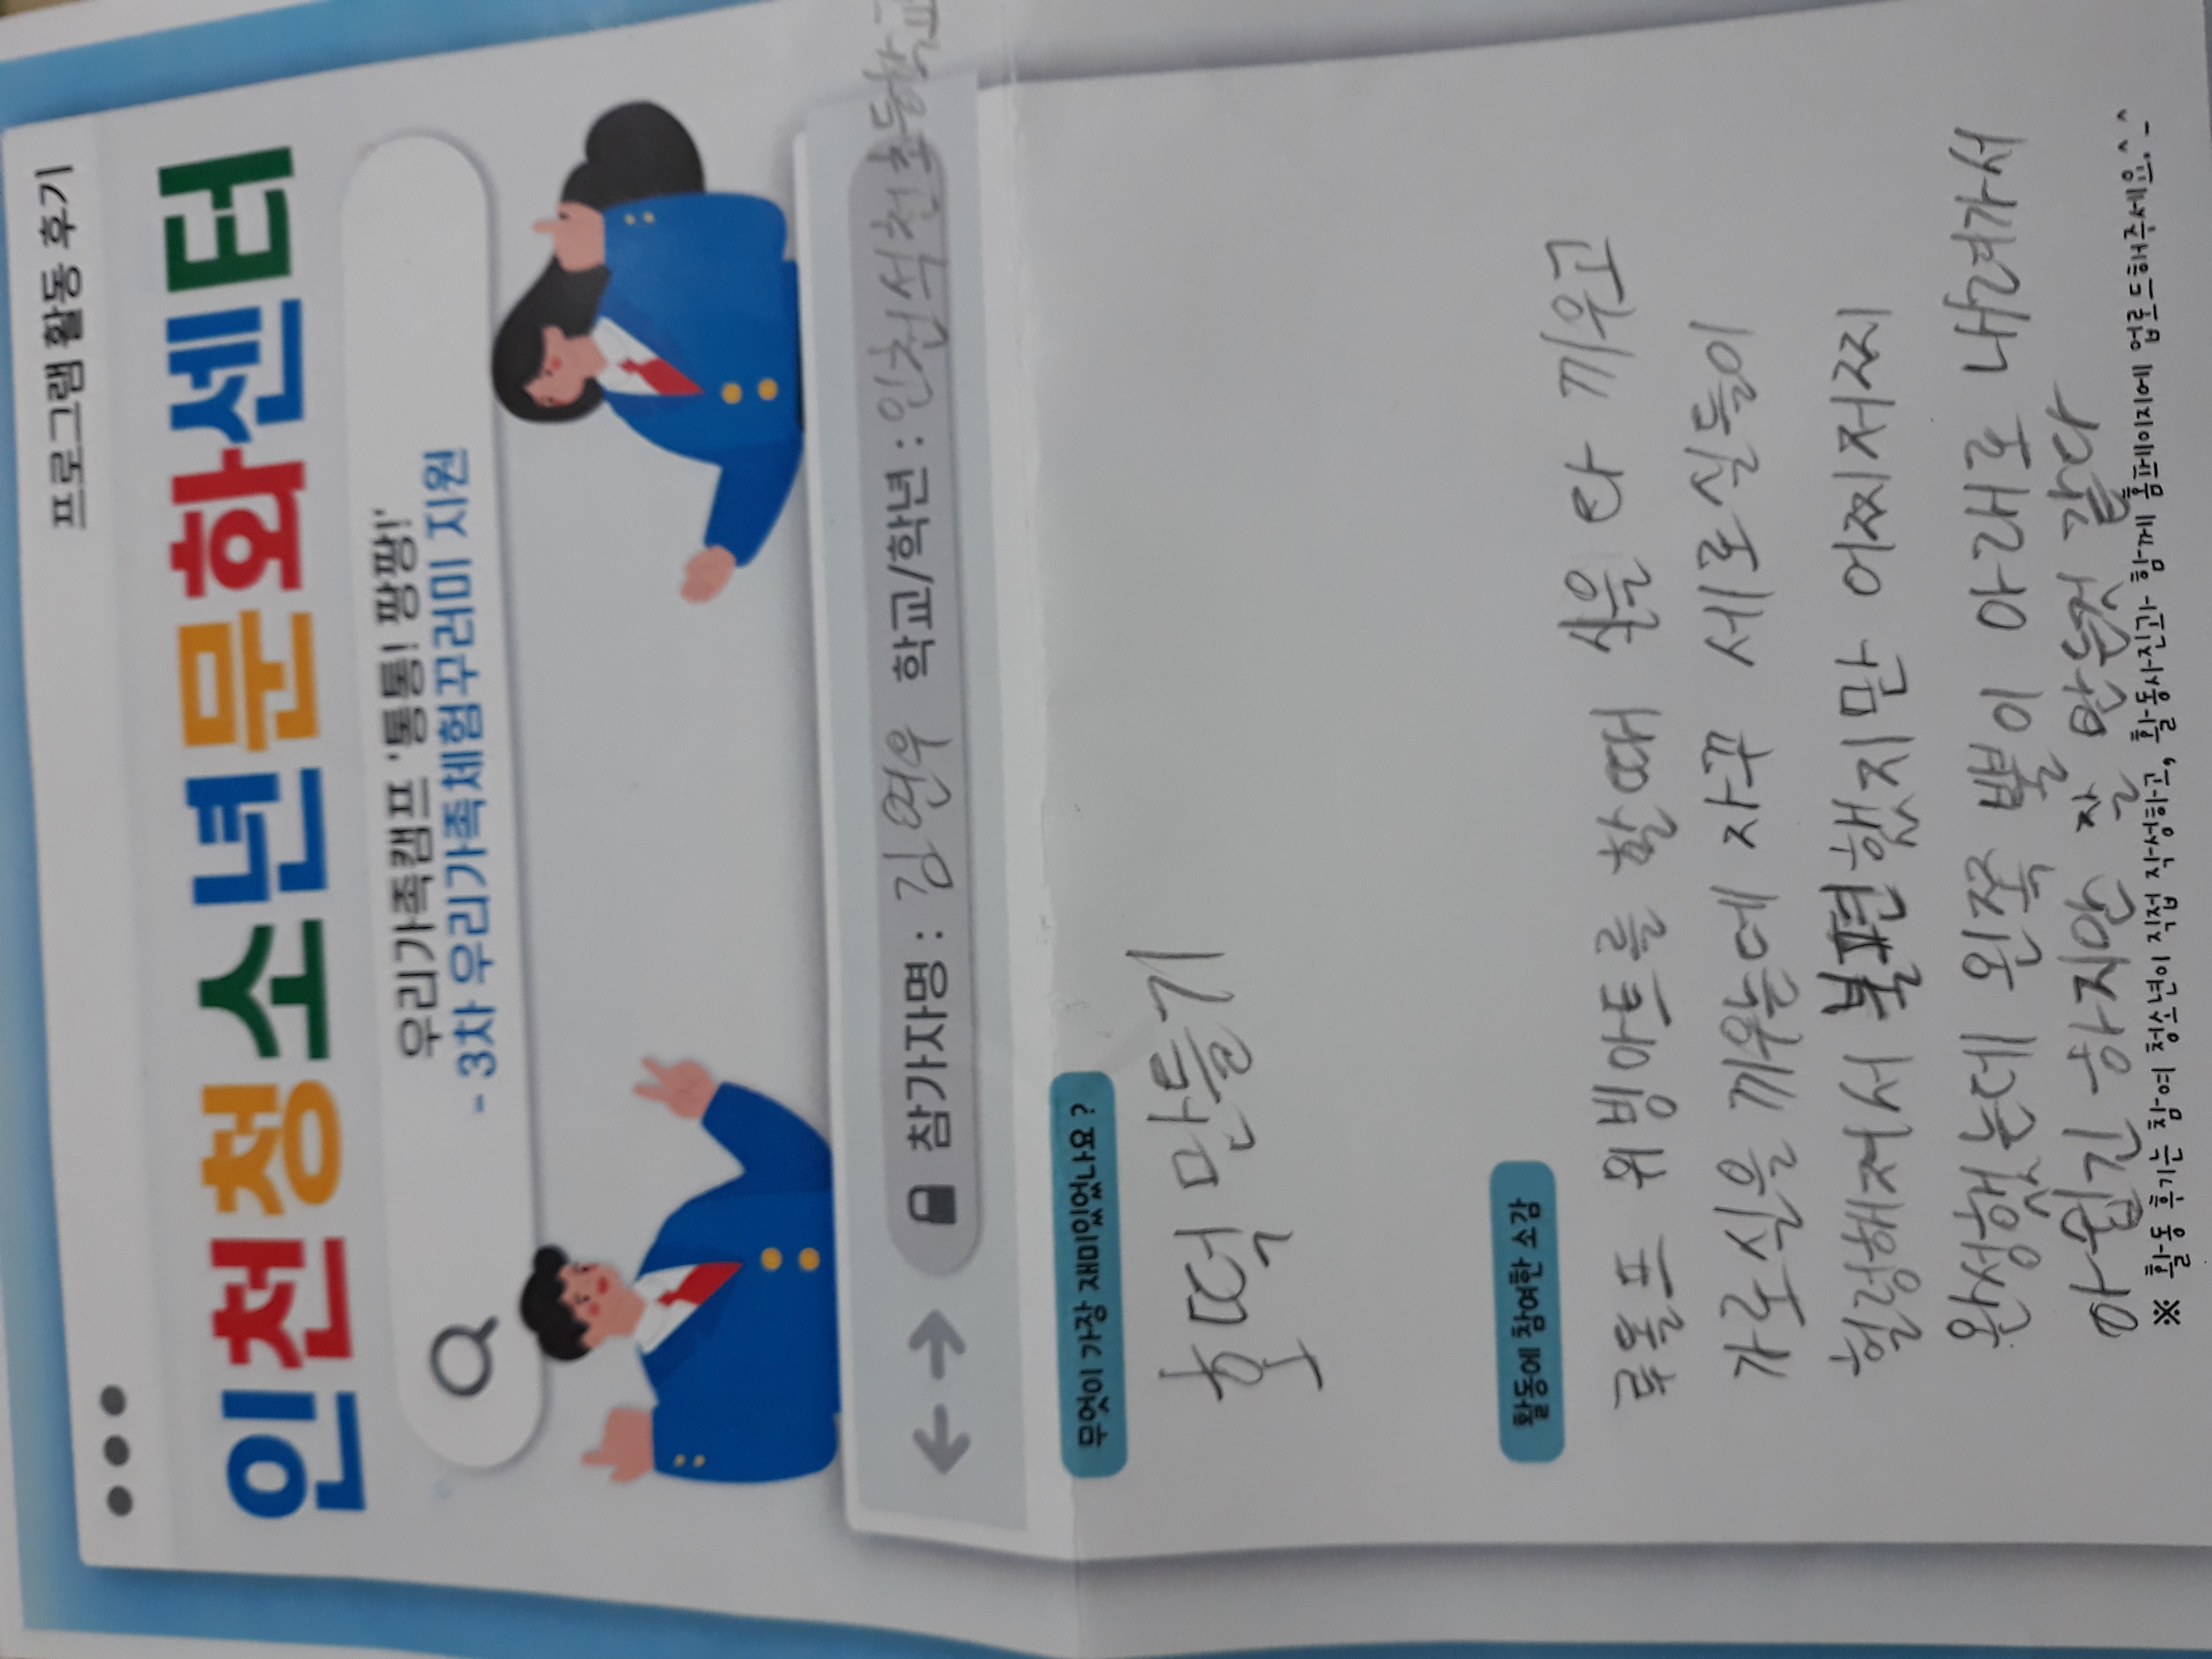 프로그램 활동 후기
인천청소년문화센터
우리가족캠프 '통통! 팡팡!'
- 3차 우리가족체험꾸러미 지원
참가자명 : 김현우 학교/학년 : 인천석천초등학교
무엇이 가장 재미있었나요?
호떡 만들기
활동에 참여한 소감
룸룸프 위빙아트를 할때 실을 다 끼우고
가로실을 끼우는데 자꾸 세로실들이
헐렁해져서 불편했지만 어찌저찌
완성했는데 왼쪽 별이 아래로 내려가서
아쉽긴 하지만 잘 한 것 같다
※ 활동 후기는 참여 청소년이 직접 작성하고, 활동사진과 함께 홈페이지에 업로드해주세요.^-^